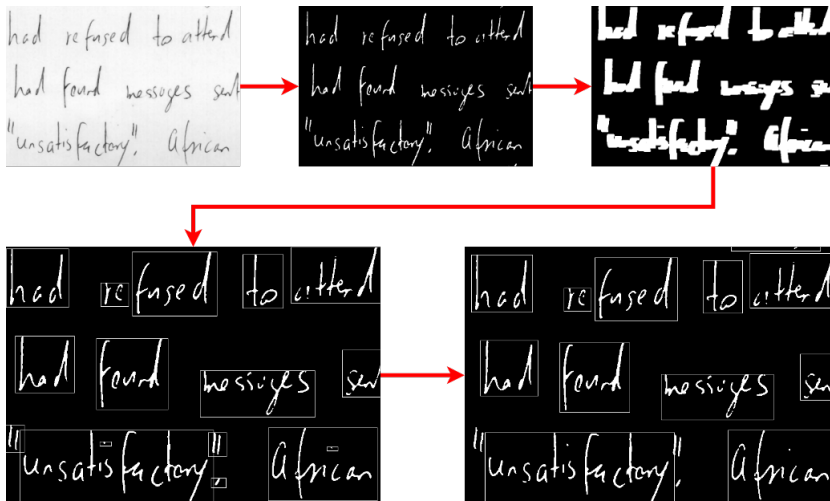 had refused to attend
had found messages sent
"unsatisfactory". African
had refused to attend
had found messages sent
"unsatisfactory". African
had refused to attend
had found messages
"unsatisfactory". African
had refused to attend
had found messages sent
"unsatisfactory". African
had refused to attend
had found messages sent
"unsatisfactory". African